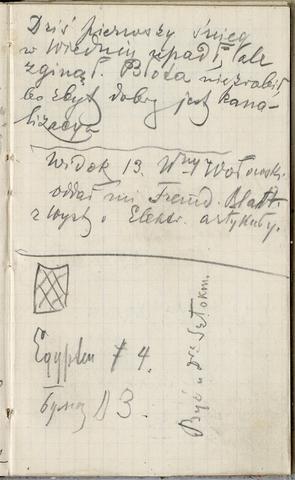 Dziś pierwszy śnieg
w Wiedniu upadł, ale
zginął. Błota nie zrobił
bo zbyt dobrą jest kana-
lizacya
Widok 13. Wny Woł
oddał mi Fremd. Blatt
z wyst. o Elektr. artykuły.
Egypten 4.
3.
Być u